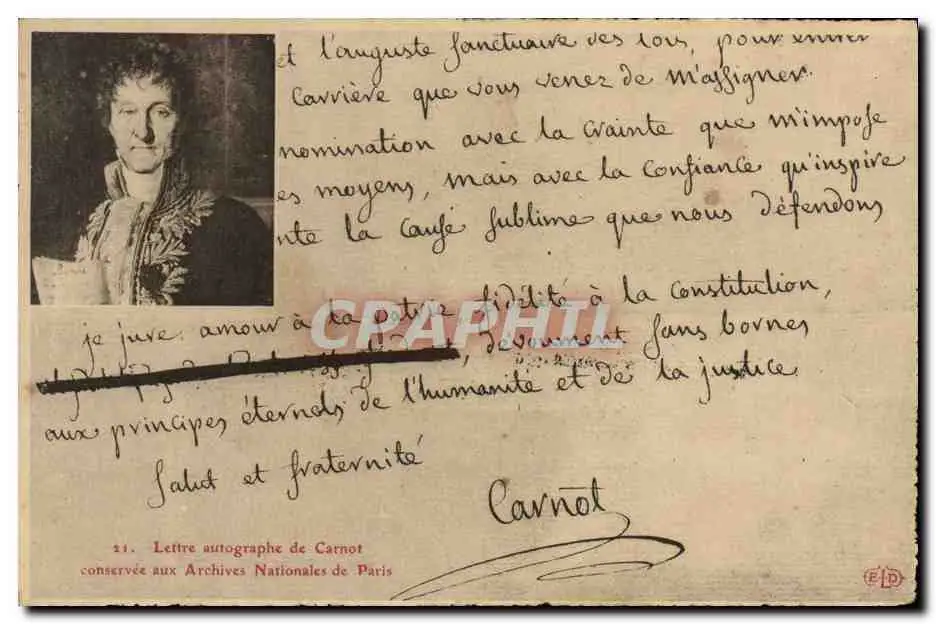 et l'auguste sanctuaire des lois, pour entrer
carrière que vous venez de m'assigner.
nomination avec la crainte que m'impose
es moyens, mais avec la confiance qu'inspire
nte la cause sublime que nous défendons
je jure amour à la patrie fidélité à la constitution,
, devoument sans bornes
aux principes éternels de l'humanité et de la justice
Salut et fraternité
Carnot
21. Lettre autographe de Carnot
conservée aux Archives Nationales de Paris
ELD
CPARHTI